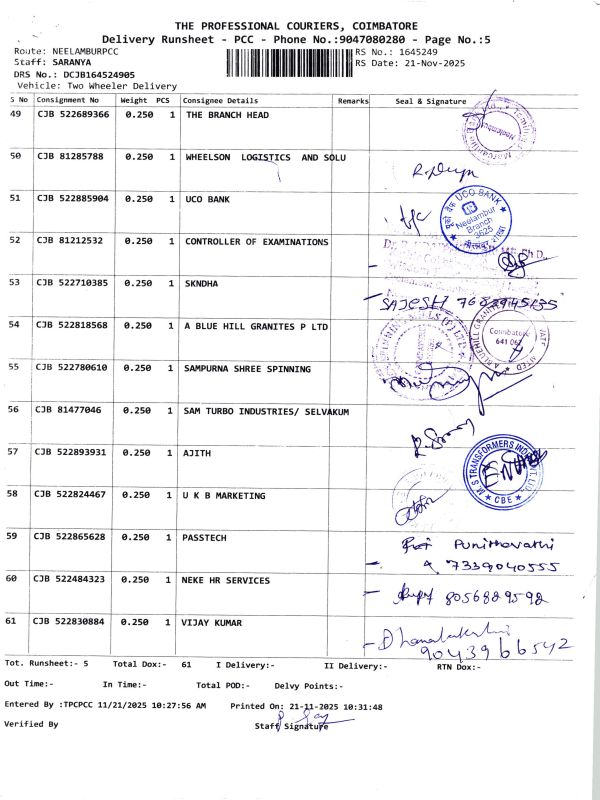 THE PROFESSIONAL COURIERS, COIMBATORE
Delivery Runsheet - PCC - Phone No.:9047080280 - Page No.:5
Route: NEELAMBURPCC RS No.: 1645249
Staff: SARANYA RS Date: 21-Nov-2025
DRS No.: DCJB164524905
Vehicle: Two Wheeler Delivery
S No Consignment No Weight PCS Consignee Details Remarks Seal & Signature
49 CJB 522689366 0.250 1 THE BRANCH HEAD
50 CJB 81285788 0.250 1 WHEELSON LOGISTICS AND SOLU
51 CJB 522885904 0.250 1 UCO BANK
UCO BANK
Neelambur
Branch
3625
52 CJB 81212532 0.250 1 CONTROLLER OF EXAMINATIONS
53 CJB 522710385 0.250 1 SKNDHA
SAJESH
54 CJB 522818568 0.250 1 A BLUE HILL GRANITES P LTD
Coimbatore
641 062
55 CJB 522780610 0.250 1 SAMPURNA SHREE SPINNING
56 CJB 81477046 0.250 1 SAM TURBO INDUSTRIES/ SELVAKUM
57 CJB 522893931 0.250 1 AJITH
CBE
58 CJB 522824467 0.250 1 U K B MARKETING
59 CJB 522865628 0.250 1 PASSTECH
Punithavathi
7339040555
60 CJB 522484323 0.250 1 NEKE HR SERVICES
8056829592
61 CJB 522830884 0.250 1 VIJAY KUMAR
Dhanalakshmi
9043966542
Tot. Runsheet:- 5 Total Dox:- 61 I Delivery:- II Delivery:- RTN Dox:-
Out Time:- In Time:- Total POD:- Delvy Points:-
Entered By :TPCPCC 11/21/2025 10:27:56 AM Printed On: 21-11-2025 10:31:48
Verified By Staff Signature